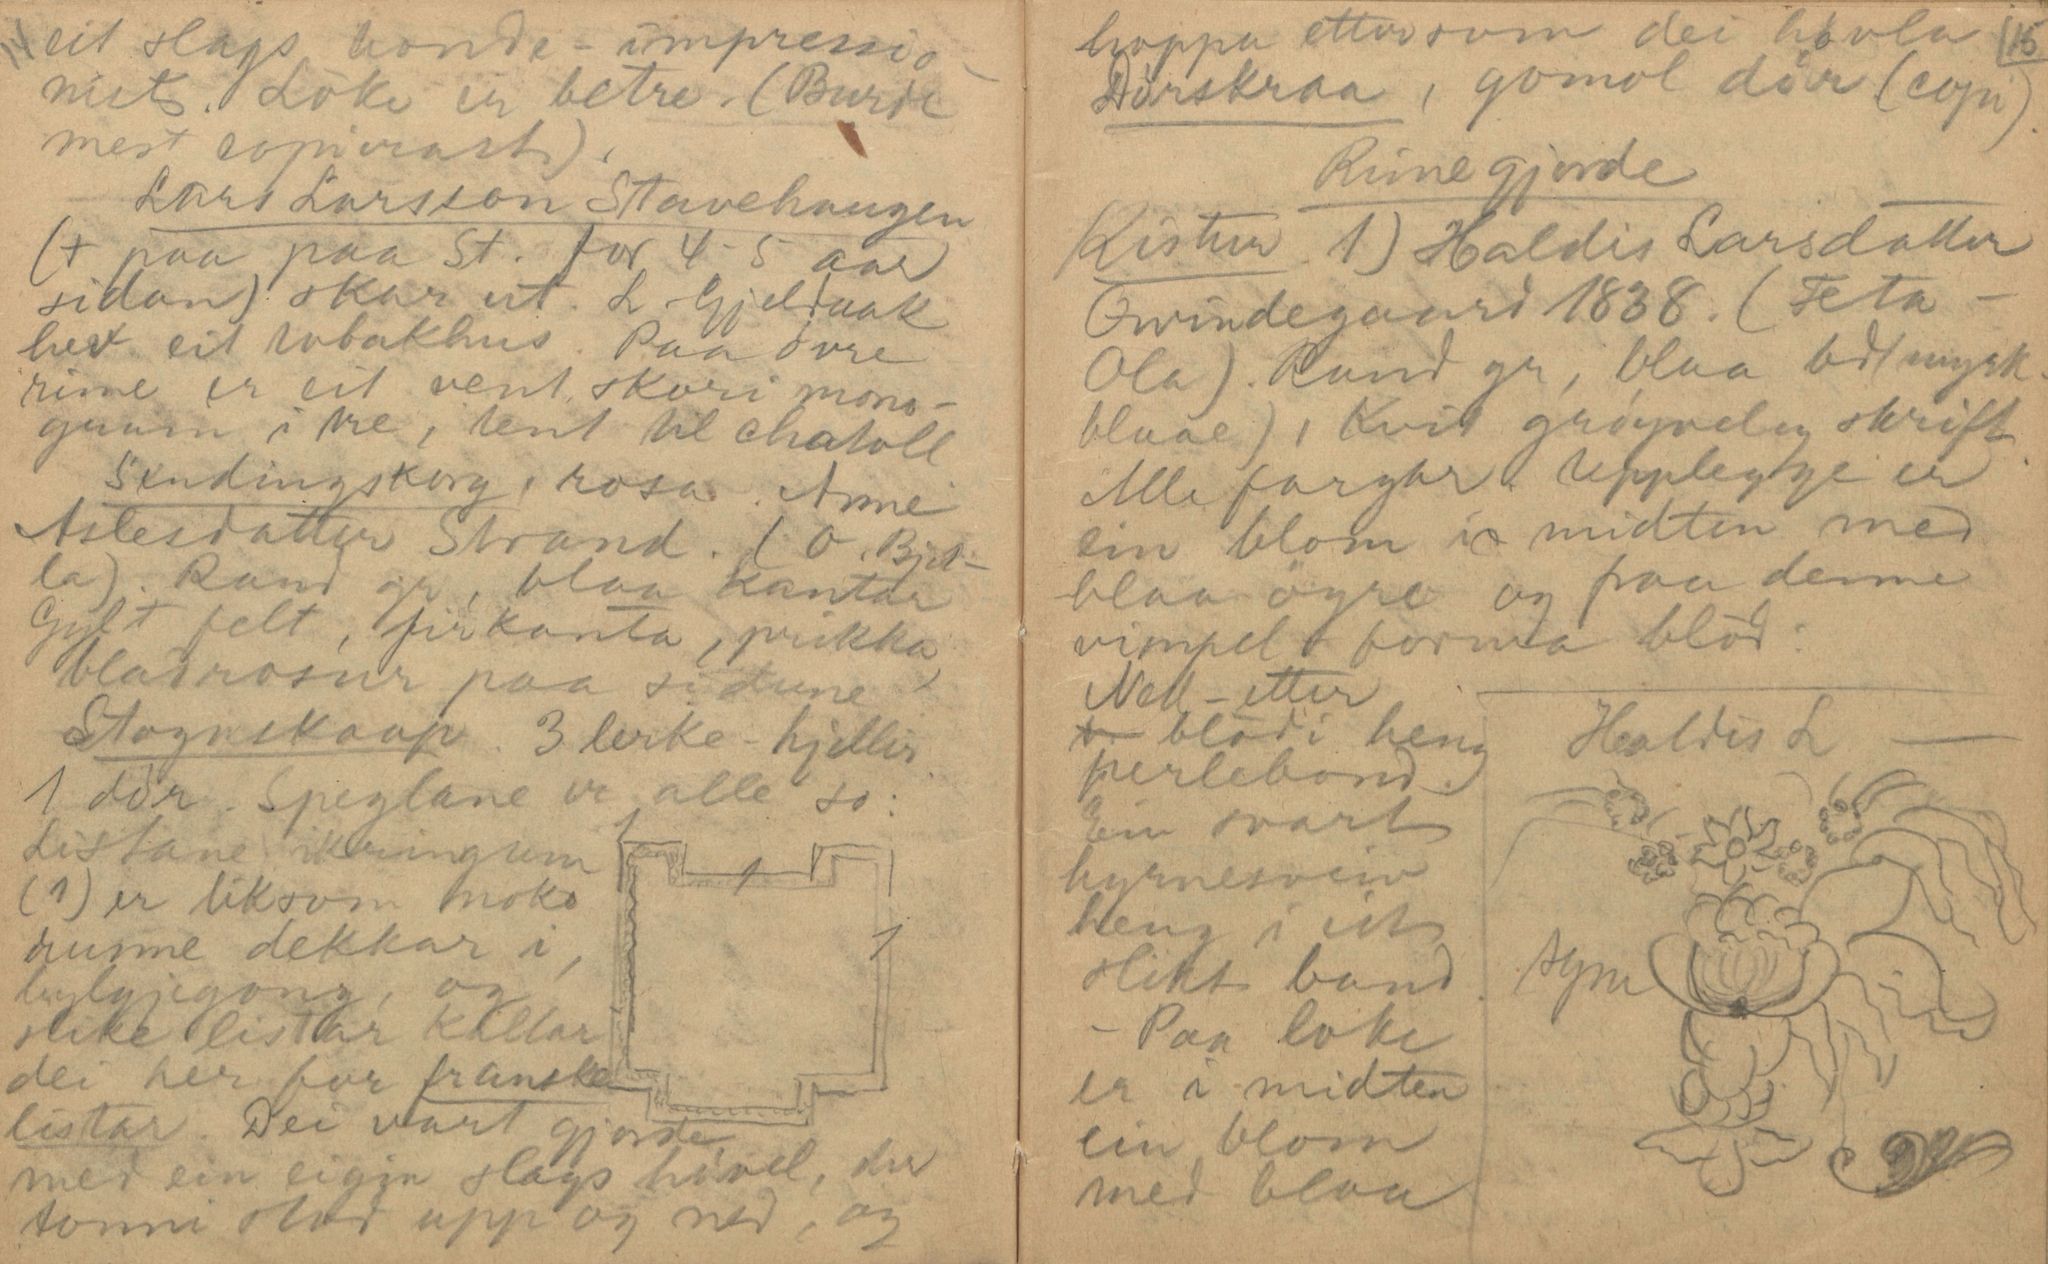 14
eit slags bonde-impressio-
nist. Loke er betre. (Burde
mest copierast).
Lars Larsson Stavehaugen
(+ paa paa St. for 4-5 aar
sidan) skar ut. L. Gjeldaak
hev eit tobakhus. Paa övre
rime er eit vent, skori mono-
gram i tre, tent til chatoll
Sendingskorg, rosa. Anne
Aslesdatter Strand. (O. Bjel-
la). Rand gr, blaa kantar
Gylt felt, firkanta, prikka,
bladrosur paa sidune
Stognskaap. 3 lerke-hjeller
1 dör. Speglane er alle so:
Listane ikringum
(1) er liksom moko
runne dekkar i,
bylgjegong, og
slike listar kallar
dei her for franske
listar. Dei vart gjorde
med ein eigin slags hövel, der
tonni stod upp og ned, og
1
1
1
15
hoppa ettersom dei hövla
Dörskraa, gomol dör (copi).
Rimegjorde
Kistur 1) Haldis Larsdatter
Qvindegaard 1838. (Feta-
Ola). Rand gr, blaa bd (myrk-
blaae), kvit gröyveleg skrift.
Alle fargar. Upplegge er
ein blom i midten med
blaa öyre og paa denne
vimpel forma blöd:
Ned-etter
blödi heng
perleband.
Ein svart
hyrnesveiv
heng i eit
slikt band.
- Paa loke
er i midten
ein blom
med blaa
Haldis L —